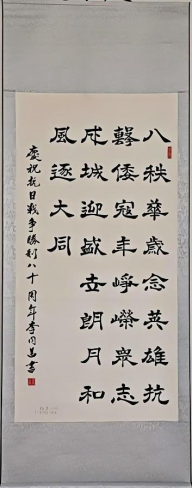 八秩華歲念英雄抗
擊倭寇年崢嶸眾志
成城迎盛世朗月和
風逐大同
慶祝抗日戰爭勝利八十周年李同書